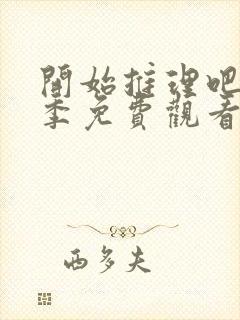 開始推理吧
季免費觀看
西多夫